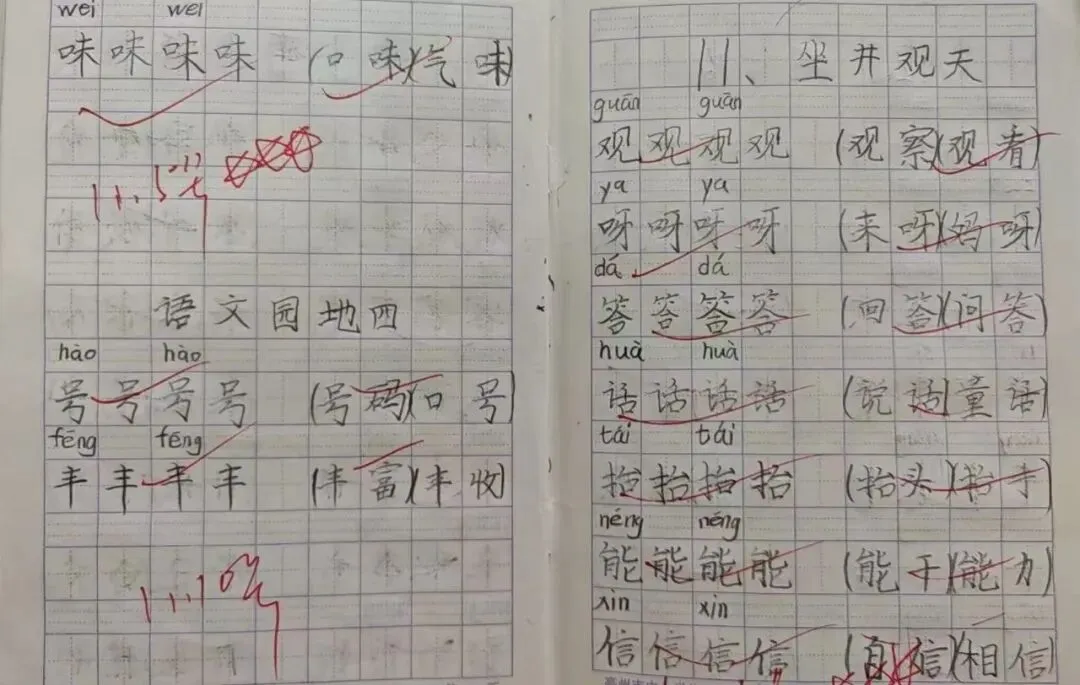 wei wei
味 味 味 味 (口 味)(气 味)
语 文 园 地 四
hào hào
号 号 号 号 (号 码)(口 号)
fēng fēng
丰 丰 丰 丰 (丰 富)(丰 收)
11、坐 井 观 天
guān guān
观 观 观 观 (观 察)(观 看)
ya ya
呀 呀 呀 呀 (来 呀)(妈 呀)
dá dá
答 答 答 答 (回 答)(问 答)
huà huà
话 话 话 话 (说 话)(童 话)
tái tái
抬 抬 抬 抬 (抬 头)(抬 手)
néng néng
能 能 能 能 (能 干)(能 力)
xìn xìn
信 信 信 信 (自 信)(相 信)